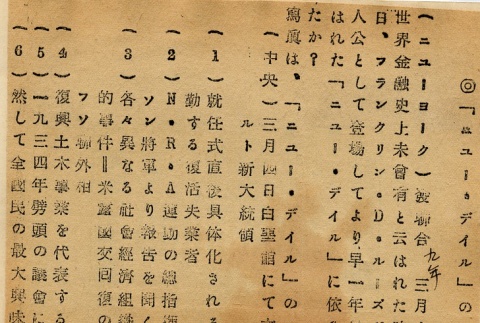 ◎『ニユー・デイル』の
(ニユーヨーク)被聯合 九年 三月
世界金融史上未曾有と云はれた
日、フランクリン・D・ルーズ
人公として登場してより早一年
はれた『ニユー・デイル』に依
たか?
寫眞は、『ニユー・デイル』の
(中央)三月四日白堊館にて
ルト新大統領
(1)就任式直後具体化され
動する復活失業者
(2)N・R・A運動の總指
ソン將軍より報告を聞
(3)各々異なる社會經濟組
的事件=米露國交回復の
フソ聯外相
(4)復興土木事業を代表する
(5)一九三四年劈頭の議會に
(6)然して全國民の最大興味